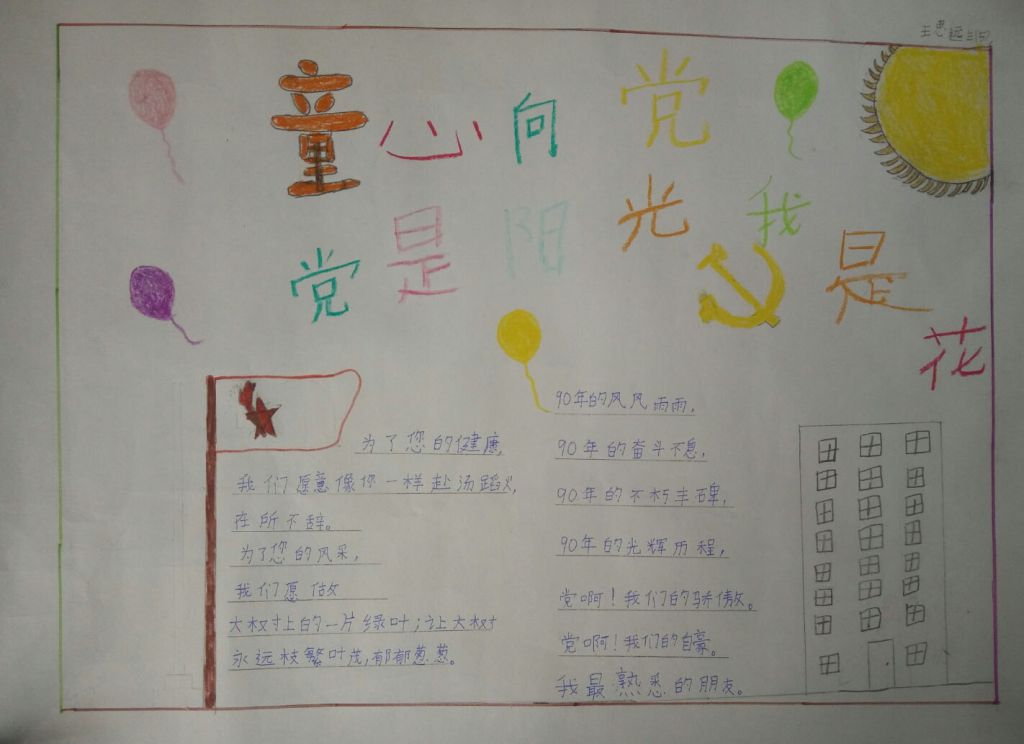 王思远
童心向党
党是阳光我是花
为了您的健康,
我们愿意像你一样赴汤蹈火,
在所不辞。
为了您的风采,
我们愿做
大树上的一片绿叶;让大树
永远枝繁叶茂,郁郁葱葱。
90年的风风雨雨,
90年的奋斗不息,
90年的不朽丰碑,
90年的光辉历程,
党啊!我们的骄傲。
党啊!我们的自豪。
我最熟悉的朋友。